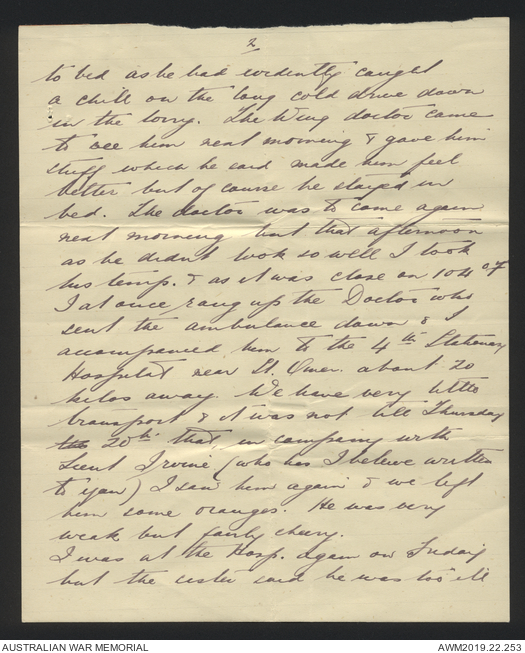 2
to bed as he had evidently caught
a chill on the long cold drive down
in the lorry. The Wing doctor came
to see him next morning & gave him
stuff which he said made him feel
better but of course he stayed in
bed. The doctor was to come again
next morning but that afternoon
as he didnt look so well I took
his temp. & as it was close on 104 of
I at once rang up the Doctor who
sent the ambulance down & I
accompanied him to the 4th Stationary
Hospital near St. Omer about 20
kilos away. We have very little
transport & it was not till Thursday
the 20th that in company with
Lieut Irvine (who has I believe written
to you) I saw him again & we left
him some oranges. He was very
weak but fairly cheery.
I was at the Hosp. again on Friday
but the sister said he was too ill
AUSTRALIAN WAR MEMORIAL
AWM2019.22.253